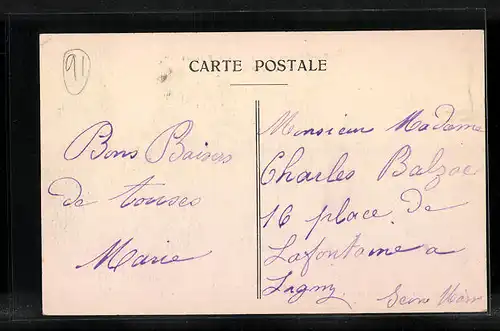 91
CARTE POSTALE
Bons Baisers
de toutes
Marie
Monsieur Madame
Charles Balzac
16 place de
Lafontaine a
Lagny
Seine Marn